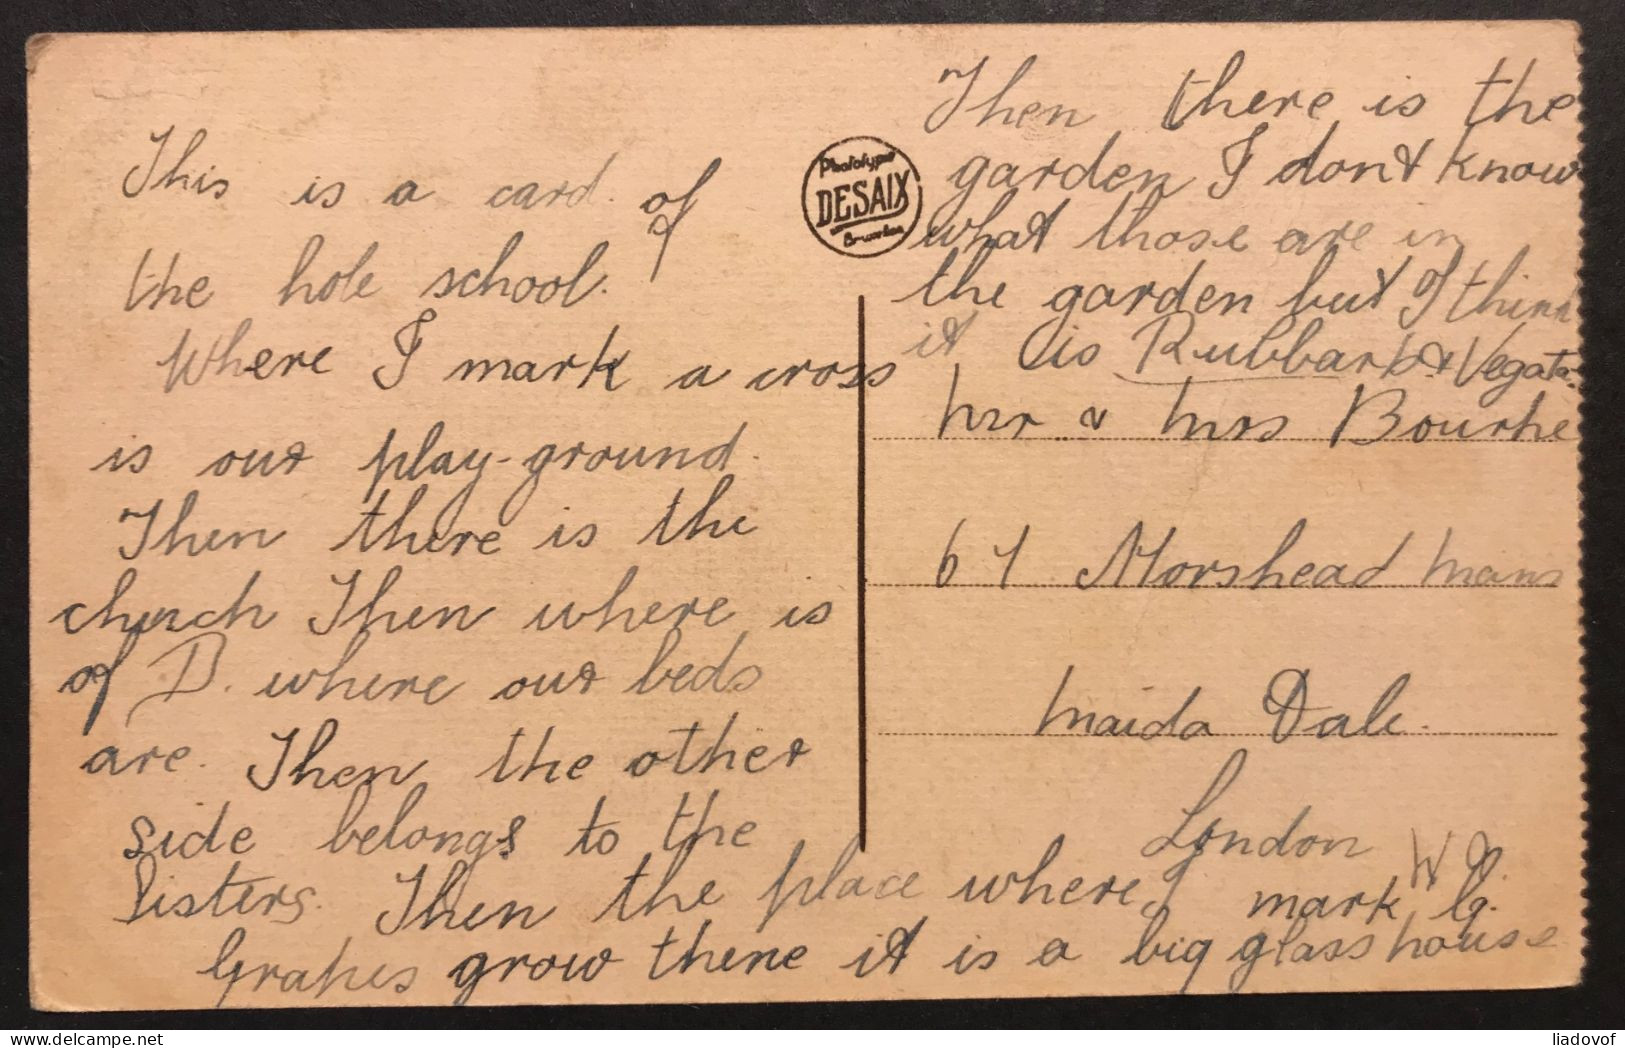 This is a card of
the hole school.
Where I mark a cross
is our play-ground.
Then there is the
church Then where is
of D. where our beds
are. Then the other
side belongs to the
Sisters. Then the place where I mark G.
Grapes grow there it is a big glass house
Phototypie
DESAIX
Bruxelles
Then there is the
garden I don't know
what those are in
the garden but I think
it is Rubbarb & Vegata-
Mr & Mrs Bourke
61 Morshead Mans
Maida Vale.
London W 9.
delcampe.net
liadovof